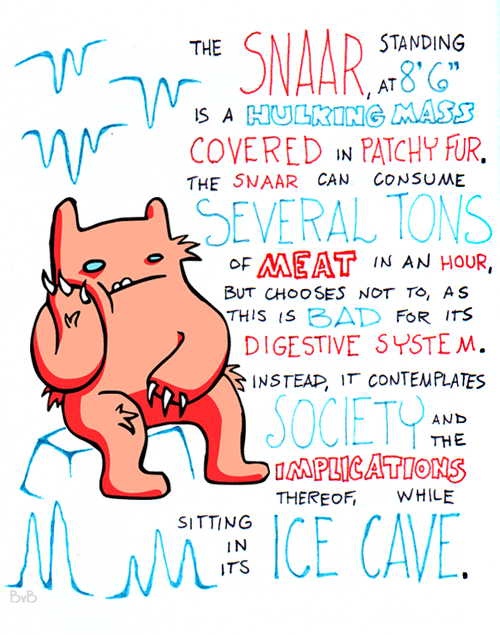 THE SNAAR, STANDING
AT 8'6"
IS A HULKING MASS
COVERED IN PATCHY FUR.
THE SNAAR CAN CONSUME
SEVERAL TONS
OF MEAT IN AN HOUR,
BUT CHOOSES NOT TO, AS
THIS IS BAD FOR ITS
DIGESTIVE SYSTEM.
INSTEAD, IT CONTEMPLATES
SOCIETY AND
THE
IMPLICATIONS
THEREOF, WHILE
SITTING
IN
ITS ICE CAVE.
BvB